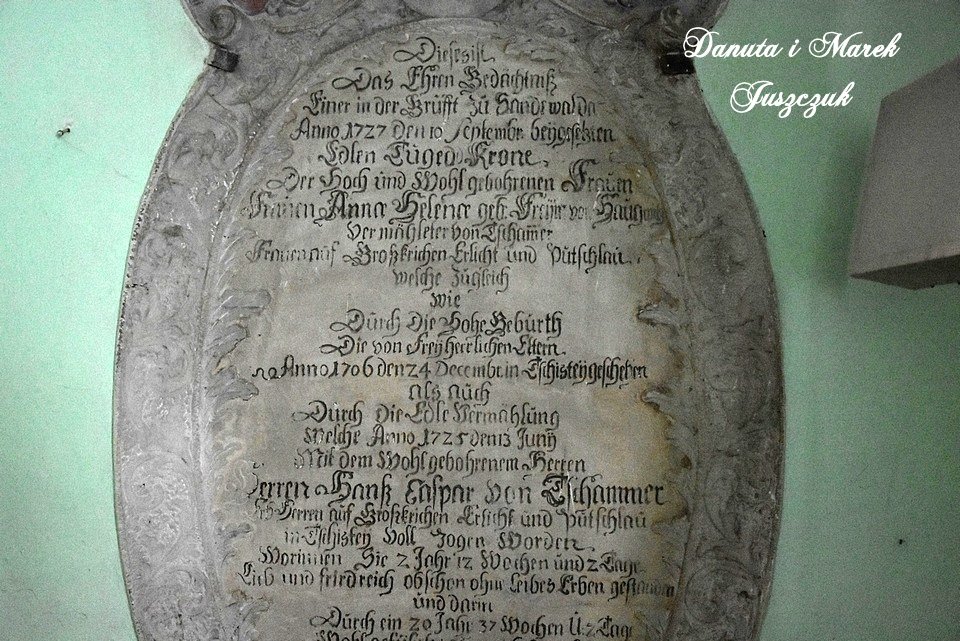 Danuta i Marek
Juszczuk
Dieses ist
Das Ehren Gedächtniß
Einer in der Grüfft zu
Anno 1727 Den 10 Septembr. beygesetzten
Edlen Tugend Krone
Der Hoch und Wohl gebohrenen Frauen
Frauen Anna Helena geb. Freyin von
Vermähleter von Tschamer
Frauen auf Großkrichen Erlicht und Pütschlau
welche zugleich
wie
Dürch Die Hohe Gebürth
Die von Freyherrlichen Eltern
Anno 1706 den 24 Decembr. in Tschistey geschehen
als auch
Dürch Die Edle Vermählüng
Welche Anno 1725 den 13 Junÿ
Mit dem Wohlgebohrenem Herren
Herren Hanß Caspar von Tschammer
Herren auf Großkrichen Erlicht und Pütschlau
in Tschistey Voll Zogen Worden
Worinnen Sie 2 Jahr 12 Wochen und 2 Tage
Lieb und friedreich obschon ohne Leibes Erben
und darin
Dürch ein 20 Jahr 37 Wochen Ü. 2 Tage